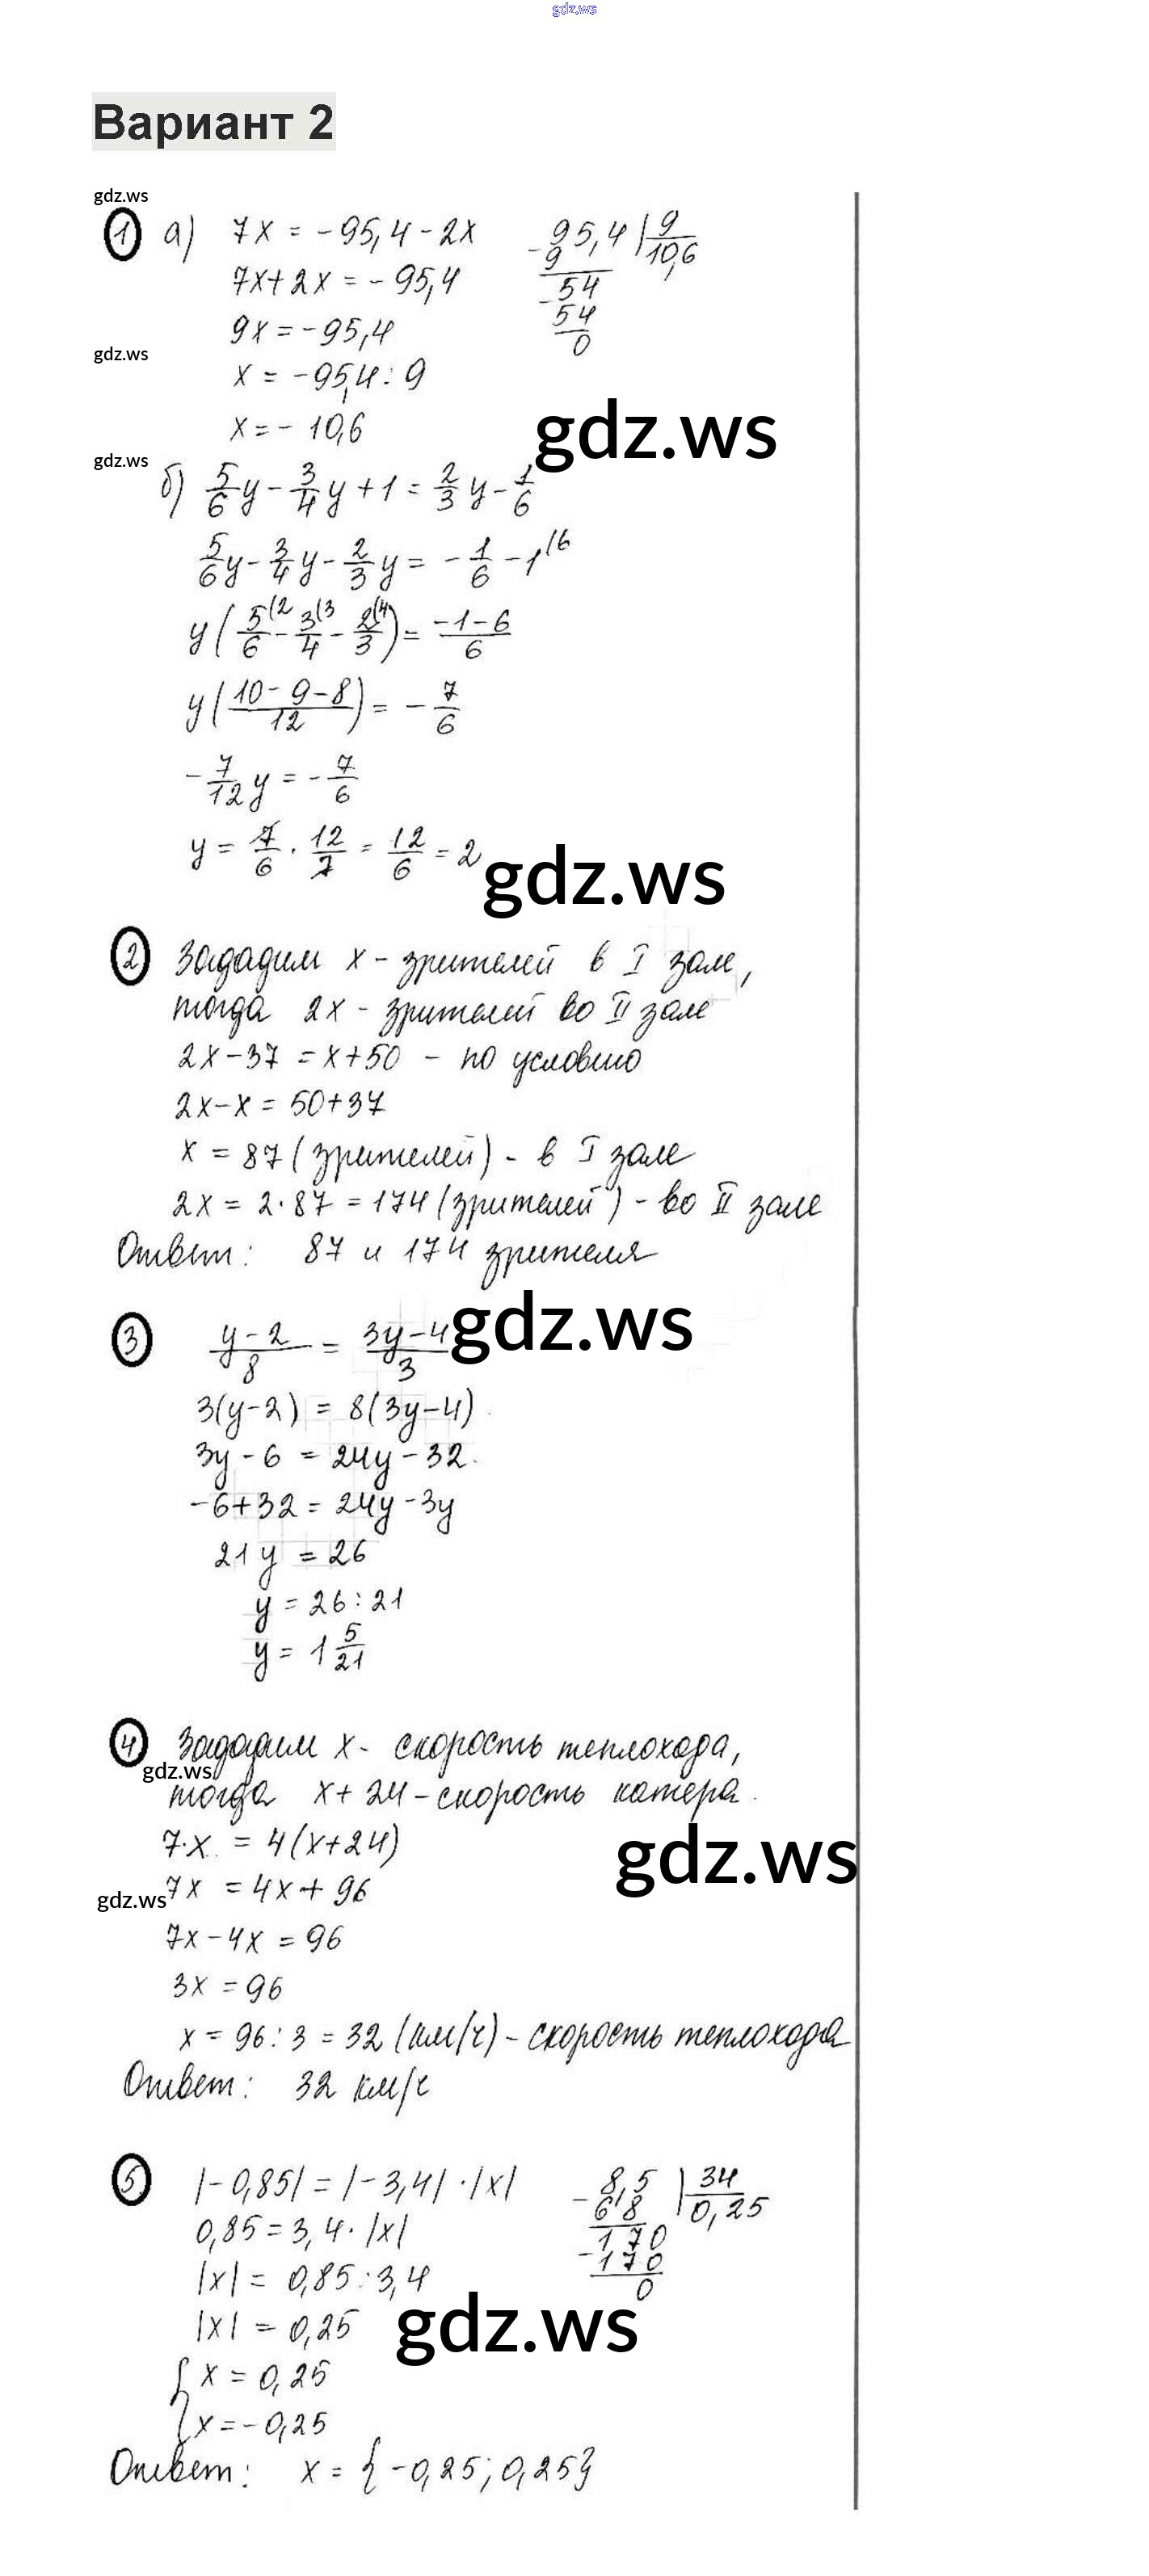 gdz.ws
Вариант 2
gdz.ws
1 а) 7x = -95,4 - 2x
7x + 2x = -95,4
9x = -95,4
gdz.ws
x = -95,4 : 9
x = -10,6
95,4 | 9
- 9 10,6
54
- 54
0
gdz.ws
gdz.ws
б) 5/6 y - 3/4 y + 1 = 2/3 y - 1/6
5/6 y - 3/4 y - 2/3 y = - 1/6 - 1 (6
y ( 5/6 (2 - 3/4 (3 - 2/3 (4 ) = (-1-6)/6
y ( (10-9-8)/12 ) = - 7/6
- 7/12 y = - 7/6
y = 7/6 · 12/7 = 12/6 = 2
gdz.ws
2 Зададим x - зрителей в I зале,
тогда 2x - зрителей во II зале
2x - 37 = x + 50 - по условию
2x - x = 50 + 37
x = 87 (зрителей) - в I зале
2x = 2 · 87 = 174 (зрителей) - во II зале
Ответ: 87 и 174 зрителя
3 (y-2)/8 = (3y-4)/3
gdz.ws
3(y-2) = 8(3y-4)
3y - 6 = 24y - 32
-6 + 32 = 24y - 3y
21y = 26
y = 26 : 21
y = 1 5/21
4 Зададим x - скорость теплохода,
gdz.ws
тогда x + 24 - скорость катера
7·x = 4(x+24)
gdz.ws
gdz.ws
7x = 4x + 96
7x - 4x = 96
3x = 96
x = 96 : 3 = 32 (км/ч) - скорость теплохода
Ответ: 32 км/ч
5 |-0,85| = |-3,4| · |x|
0,85 = 3,4 · |x|
|x| = 0,85 : 3,4
|x| = 0,25
8,5 | 34
- 6 8 0,25
170
- 170
0
gdz.ws
{ x = 0,25
x = -0,25
Ответ: x = {-0,25; 0,25}